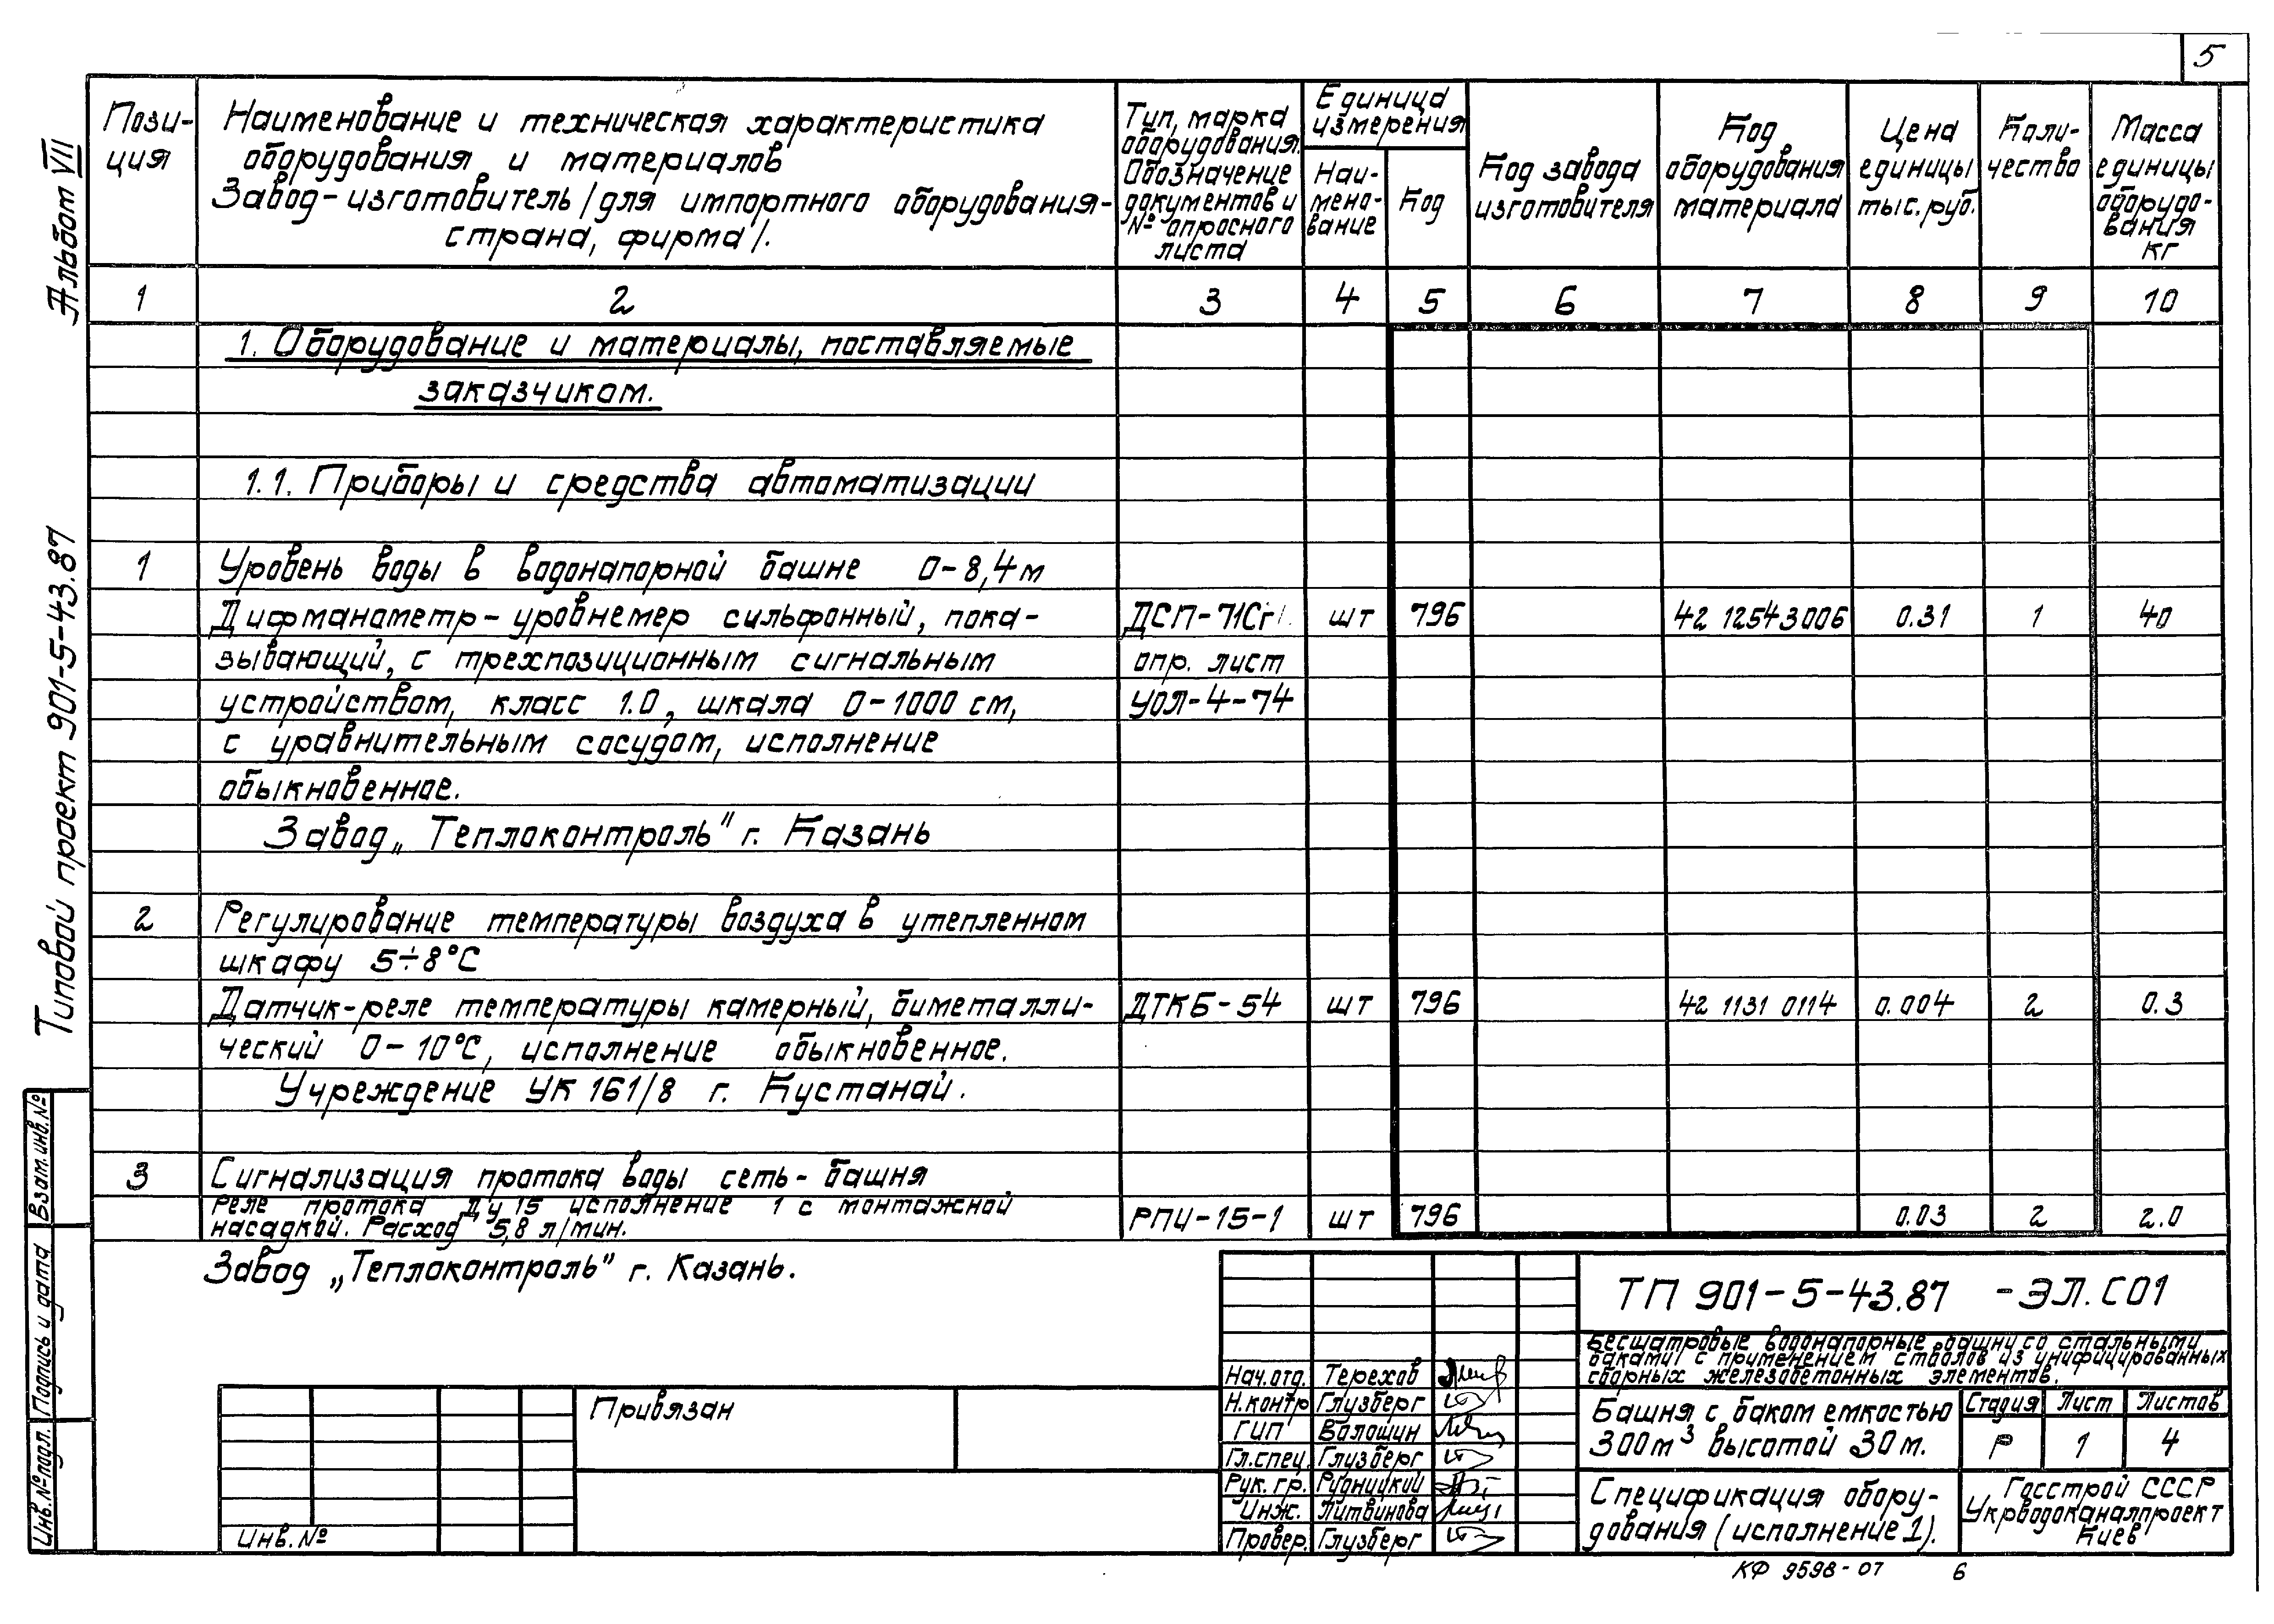 5
Альбом VII
Типовой проект 901-5-43.87
Взам. инв. №
Подпись и дата
Инв. № подл.
Пози-
ция
Наименование и техническая характеристика
оборудования и материалов
Завод-изготовитель /для импортного оборудования-
страна, фирма/.
Тип, марка
оборудования.
Обозначение
документов и
№ опросного
листа
Единица
измерения
Наи-
мено-
вание
Код
Код завода
изготовителя
Код
оборудования
материала
Цена
единицы
тыс. руб.
Коли-
чество
Масса
единицы
оборудо-
вания
кг
1 2 3 4 5 6 7 8 9 10
1. Оборудование и материалы, поставляемые
заказчиком.
1.1. Приборы и средства автоматизации
1 Уровень воды в водонапорной башне 0-8,4м
Дифманометр-уровнемер сильфонный, пока- ДСП-71Сг шт 796 42 12543006 0.31 1 40
зывающий, с трехпозиционным сигнальным опр. лист
устройством, класс 1.0, шкала 0-1000 см, УОЛ-4-74
с уравнительным сосудом, исполнение
обыкновенное.
Завод „Теплоконтроль" г. Казань
2 Регулирование температуры воздуха в утепленном
шкафу 5÷8°С
Датчик-реле температуры камерный, биметалли- ДТКБ-54 шт 796 42 1131 0114 0.004 2 0.3
ческий 0-10°С, исполнение обыкновенное.
Учреждение УК 161/8 г. Кустанай.
3 Сигнализация протока воды сеть-башня
Реле протока Ду 15 исполнение 1 с монтажной
насадкой. Расход 5,8 л/мин. РПИ-15-1 шт 796 0.03 2 2.0
Завод „Теплоконтроль" г. Казань.
ТП 901-5-43.87 -ЭЛ.СО1
Бесшатровые водонапорные башни со стальными
баками с применением стволов из унифицированных
сборных железобетонных элементов.
Нач. отд. Терехов
Н. контр Глузберг
ГИП Волошин
Гл. спец. Глузберг
Рук. гр. Рудницкий
Инж. Литвинова
Провер. Глузберг
Башня с баком емкостью
300м³ высотой 30м.
Стадия Лист Листов
Р 1 4
Спецификация обору-
дования (исполнение 1).
Госстрой СССР
Укрводоканалпроект
Киев
Привязан
Инв. №
КФ 9598-07 6